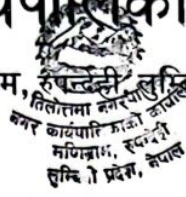 र्यपालिका
म, रुपन्देही, लुम्बि
तिलोत्तमा नगरपा
नगर कार्यपालिकाको कार्यालय
मणिग्राम, रुपन्देही
लुम्बिनी प्रदेश, नेपाल